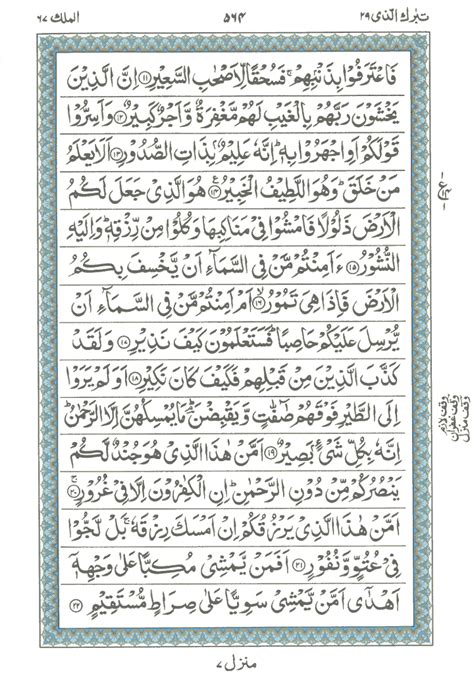 تبٰرك الذی ٢٩
٥٦٤
الملك ٦٧
فَاعْتَرَفُوْا بِذَنْۢبِهِمْ ۚ فَسُحْقًا لِّاَصْحٰبِ السَّعِيْرِ ﴿۱۱﴾ اِنَّ الَّذِيْنَ
يَخْشَوْنَ رَبَّهُمْ بِالْغَيْبِ لَهُمْ مَّغْفِرَةٌ وَّاَجْرٌ كَبِيْرٌ ﴿۱۲﴾ وَاَسِرُّوْا
قَوْلَكُمْ اَوِ اجْهَرُوْا بِهٖ ؕ اِنَّهٗ عَلِيْمٌۢ بِذَاتِ الصُّدُوْرِ ﴿۱۳﴾ اَلَا يَعْلَمُ
مَنْ خَلَقَ ؕ وَهُوَ اللَّطِيْفُ الْخَبِيْرُ ﴿۱۴﴾ هُوَ الَّذِيْ جَعَلَ لَكُمُ
الْاَرْضَ ذَلُوْلًا فَامْشُوْا فِيْ مَنَاكِبِهَا وَكُلُوْا مِنْ رِّزْقِهٖ ؕ وَاِلَيْهِ
النُّشُوْرُ ﴿۱۵﴾ ءَاَمِنْتُمْ مَّنْ فِي السَّمَآءِ اَنْ يَّخْسِفَ بِكُمُ
الْاَرْضَ فَاِذَا هِيَ تَمُوْرُ ﴿۱۶﴾ اَمْ اَمِنْتُمْ مَّنْ فِي السَّمَآءِ اَنْ
يُّرْسِلَ عَلَيْكُمْ حَاصِبًا ؕ فَسَتَعْلَمُوْنَ كَيْفَ نَذِيْرِ ﴿۱۷﴾ وَلَقَدْ
كَذَّبَ الَّذِيْنَ مِنْ قَبْلِهِمْ فَكَيْفَ كَانَ نَكِيْرِ ﴿۱۸﴾ اَوَلَمْ يَرَوْا
اِلَى الطَّيْرِ فَوْقَهُمْ صٰٓفّٰتٍ وَّيَقْبِضْنَ ؔؕ مَا يُمْسِكُهُنَّ اِلَّا الرَّحْمٰنُ ؕ
اِنَّهٗ بِكُلِّ شَيْءٍۢ بَصِيْرٌ ﴿۱۹﴾ اَمَّنْ هٰذَا الَّذِيْ هُوَ جُنْدٌ لَّكُمْ
يَنْصُرُكُمْ مِّنْ دُوْنِ الرَّحْمٰنِ ؕ اِنِ الْكٰفِرُوْنَ اِلَّا فِيْ غُرُوْرٍ ﴿۲۰﴾
اَمَّنْ هٰذَا الَّذِيْ يَرْزُقُكُمْ اِنْ اَمْسَكَ رِزْقَهٗ ۚ بَلْ لَّجُّوْا
فِيْ عُتُوٍّ وَّنُفُوْرٍ ﴿۲۱﴾ اَفَمَنْ يَّمْشِيْ مُكِبًّا عَلٰى وَجْهِهٖٓ
اَهْدٰٓى اَمَّنْ يَّمْشِيْ سَوِيًّا عَلٰى صِرَاطٍ مُّسْتَقِيْمٍ ﴿۲۲﴾
وقف لازم
وقف غفران
وقف منزل
منزل ٧